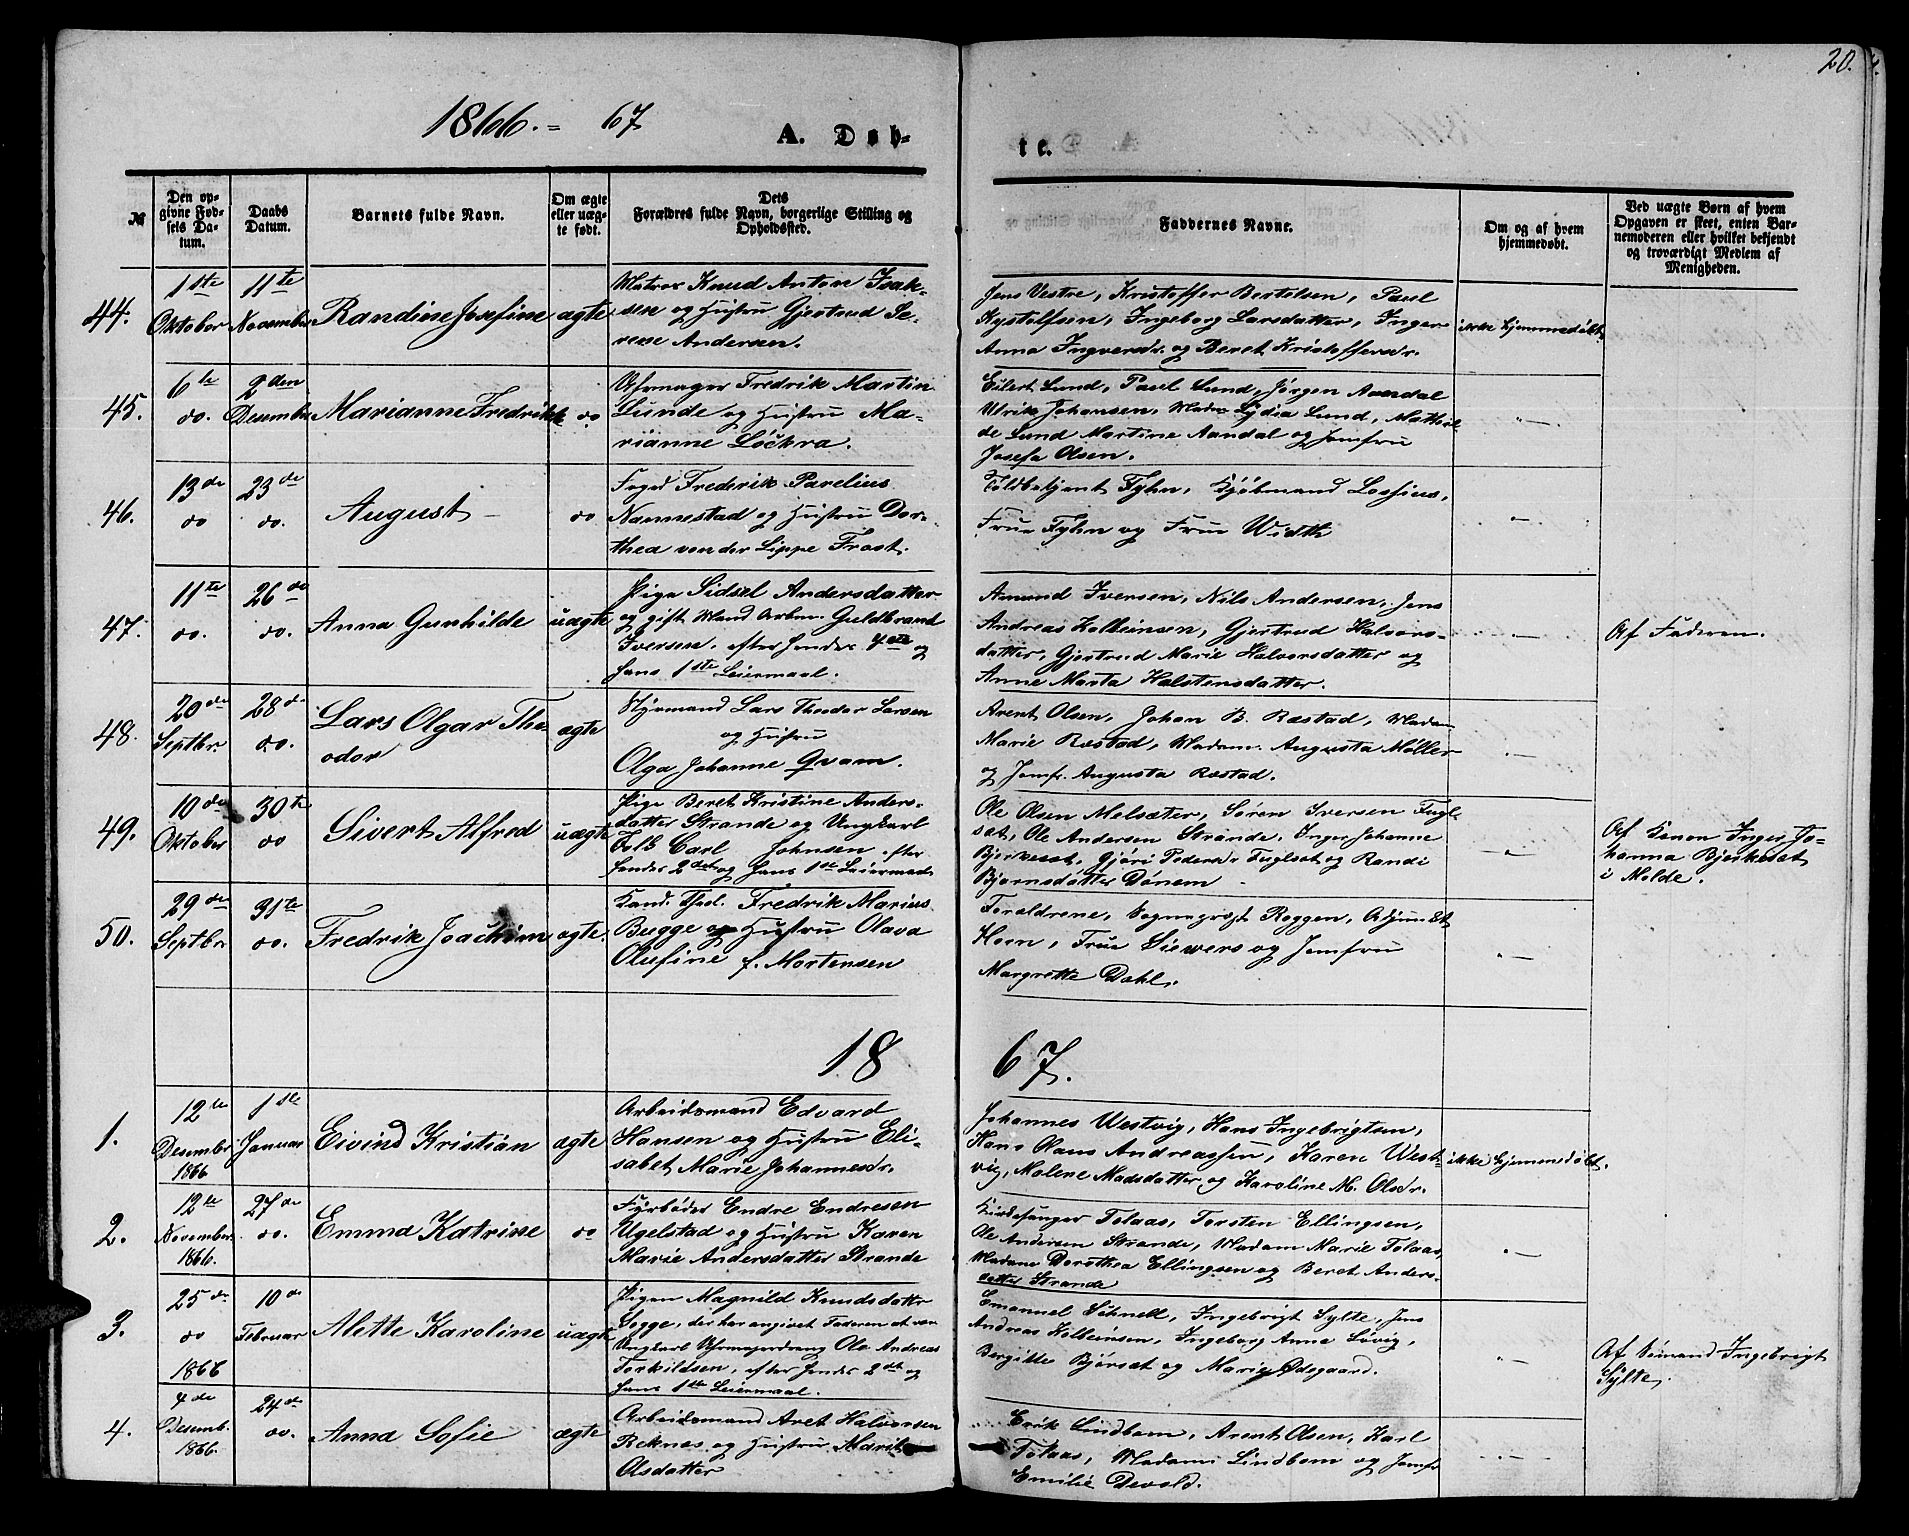 20.
1866. = 67
A. Døb-
te.
№
Den op-
givne Fød-
sels Da-
tum.
Daabs
Datum.
Barnets fulde Navn.
Om ægte
eller uæg-
te født.
Dets
Forældres fulde Navn, borgerlige Stilling og
Opholdssted.
Faddernes Navne.
Om og af hvem
hjemmedøbt.
Ved uægte Børn af hvem
Opgaven er skeet, enten Bar-
nemoderen eller hvilket bekjendt
og troværdigt Medlem af
Menigheden.
44.
1ste
Oktober
11te
November
Randine Josefine
ægte
Matros Knud Anton Isak-
sen og Hustru Gjertrud Se-
verine Andersen.
Jens Vestre, Kristoffer Bertelsen, Paul
Kystolfsen, Ingeborg Larsdatter, Inger
Anna Ingversdr. og Beret Kristoffersdr.
ikke hjemmedøbt.
45.
6te
do.
2den
Desember
Marianne Fredrikke
do
Uhrmager Fredrik Martin
Lunde og Hustru Ma-
rianne Løckra.
Eilert Lund, Paul Lund, Jørgen Aandal
Ulrik Johansen, Madm Lydia Lund, Mathil-
de Lund Martine Aandal og Jomfru
Josefa Olsen.
"
46.
13de
do
23de
do.
August
do
Foged Frederik Parelius
Nannestad og Hustru Dor-
thea von der Lippe Frost.
Toldbetjent Fyhn, Kjøbmand Lossius,
Frue Fyhn og Frue Width
"
47.
11te
do.
26de
do.
Anna Gunhilde
uægte
Pige Sidsel Andersdatter
og gift Mand Arbm. Guldbrand
Iversen, efter hendes 4de og
hans 1ste Leiermaal.
Amund Iversen, Nils Andersen, Jens
Andreas Kolbeinsen, Gjertrud Halvors-
datter, Gjertrud Marie Halvorsdatter og
Anne Marta Halstensdatter.
"
Af Faderen.
48.
20de
Septbr.
28de
do.
Lars Olgar The-
odor
ægte
Styrmand Lars Theodor Larsen
og Hustru
Olga Johanne Qvam.
Arent Olsen, Johan B. Røstad, Madam
Marie Røstad, Madam Augusta Møller
og Jomfr. Augusta Røstad.
"
49.
10de
Oktober
30te
do
Sivert Alfred
uægte
Pige Beret Kristine Anders-
datter Strande og Ungkarl
Falk Carl Johnsen efter
hendes 2det og hans 1ste Leiermaal
Ole Olsen Melsæter, Søren Iversen Fugl-
set, Ole Andersen Strande, Inger Johanne
Bjerkeset, Gjøri Pedersdr Fuglset og Randi
Bjørnsdatter Dønem
"
Af Konen Inger Jo-
hanna Bjerkeset
i Molde.
50.
29de
Septbr
31te
do.
Fredrik Joachim
ægte
Kand. Theol. Fredrik Marius
Bugge og Hustru Olava
Olufine f. Mortensen
Forældrene, Sogneprest Roggen, Adjunkt
Horn, Frue Siewers og Jomfru
Margrette Dahl.
"
18
67.
1.
12te
Desember
1866
1ste
Januar
Eivind Kristian
ægte
Arbeidsmand Edvard
Hansen og Hustru Eli-
sabet Marie Johannesdr.
Johannes Westvig, Hans Ingebrigtsen,
Hans Olaus Andreassen, Karen West-
vig, Malene Madsdatter og Karoline M. Olsdr.
ikke hjemmedøbt.
2.
12te
November
1866.
27de
do.
Emma Katrine
do
Fyrbøder Endre Endresen
Ugelstad og Hustru Karen
Marie Andersdatter Strande
Kirkesanger Tolaas, Torsten Ellingsen,
Ole Andersen Strande, Madam Marie Tolaas,
Madame Dorothea Ellingsen og Beret Anders-
datter Strande
"
3.
25de
do
1866
10de
Februar
Alette Karoline
uægte
Pigen Magnild Knudsdatter
Sogge, der har angivet Faderen at være
Ungkarl Uhrmagerdreng Ole Andreas
Torkildsen, efter hendes 2det og
hans 1ste Leiermaal.
Emanuel Schnell, Ingebrigt Sylte, Jens
Andreas Kolbeinsen, Ingeborg Anna Løvig,
Bergitte Bjørset og Marie Ødegaard.
"
Af Sømand Ingebrigt
Sylte.
4.
4de
Desemb.
1866.
24de
do.
Anna Sofie
ægte
Arbeidsmand Aret Halvorsen
Reknes og Hustru Marit
Olsdatter
Erik Lindbom, Arent Olsen, Karl
Tolaas, Madam Lindbom og Jomfr
Emilie Devold.
"